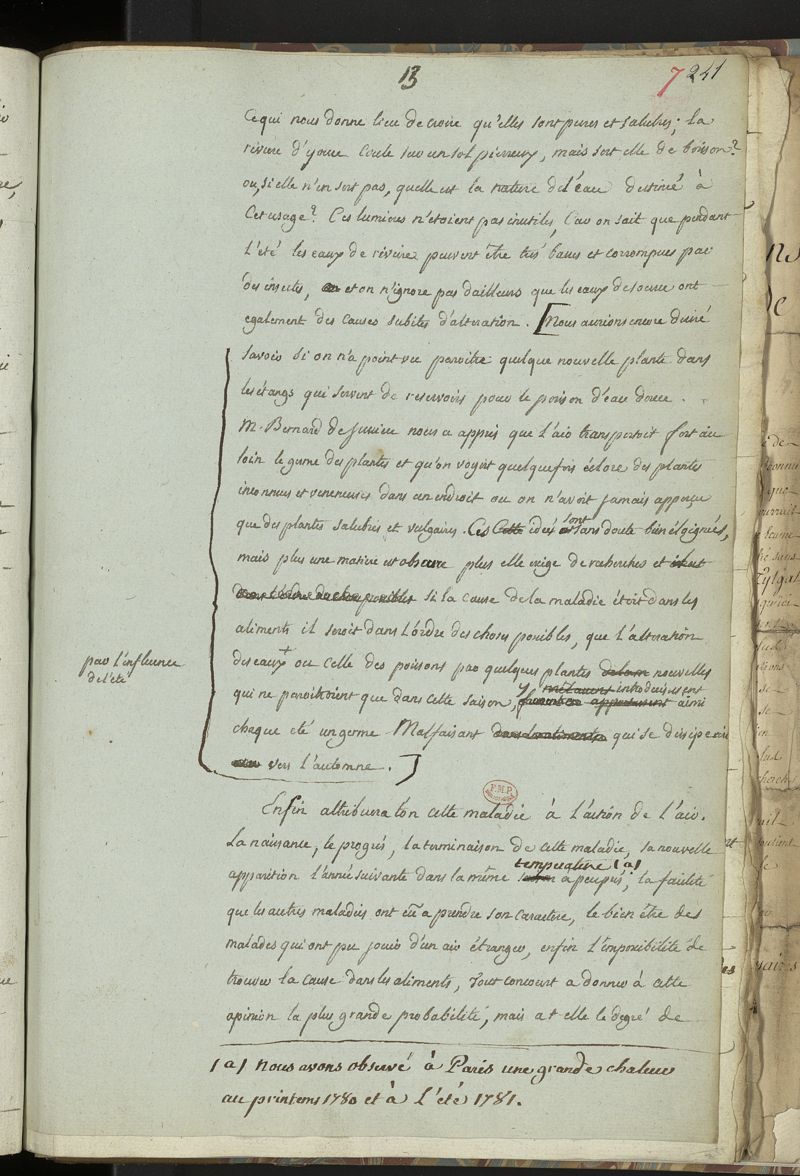 13
7 241
Ce qui nous donne lieu de croire qu'elles sont pures et salubres; la
riviere d'yonne coule sur un sol pierreux, mais sert elle de boisson?
ou, si elle n'en sert pas, quelle est la nature de l'eau destinée à
Cet usage? Ces lumieres n'etoient pas inutiles, Car on sait que pendant
L'été les eaux de riviere peuvent être très basses et corrompues par
des insectes, et on n'ignore pas d'ailleurs que les eaux de source ont
egalement des causes subites d'alteration. [Nous aurions encore desiré
savoir si on n'a point vu paroitre quelque nouvelle plante dans
les étangs qui servent de reservoirs pour le poisson d'eau douce.
M. Bernard de Jussieu nous a appris que L'air transportoit fort au
loin le germe des plantes et qu'on voyoit quelquefois éclore des plantes
inconnues et veneneuses dans un endroit ou on n'avoit jamais apperçu
que des plantes salubres et vulgaires. Ces Cette idées sont sans doute bien éloignées,
mais plus une matiere est obscure plus elle exige de recherches et il est
dans l'ordre des choses possibles si la cause de la maladie étoit dans les
aliments il seroit dans L'ordre des choses possibles, que L'alteration
des eaux + ou celle des poissons par quelques plantes nouvelles
par l'influence
de l'été
qui ne paroitroient que dans cette saison, y introduisissent ainsi
chaque eté un germe Malfaisant dans les aliments qui se dissiperoit
vers l'automne.]
Enfin attribuera t'on cette maladie à L'action de L'air.
La naissance, le progrès, la terminaison de cette maladie, sa nouvelle
apparition L'année suivante dans la même temperature (a) a peuprès; la facilité
que les autres maladies ont eu a prendre son caractere, le bien être des
malades qui ont pu jouir d'un air étranger, enfin L'impossibilité de
trouver la cause dans les aliments, Tout concourt a donner à cette
opinion la plus grande probabilité, mais a t elle le degré de
(a) Nous avons observé à Paris une grande chaleur
au printems 1780 et à L'été 1781.